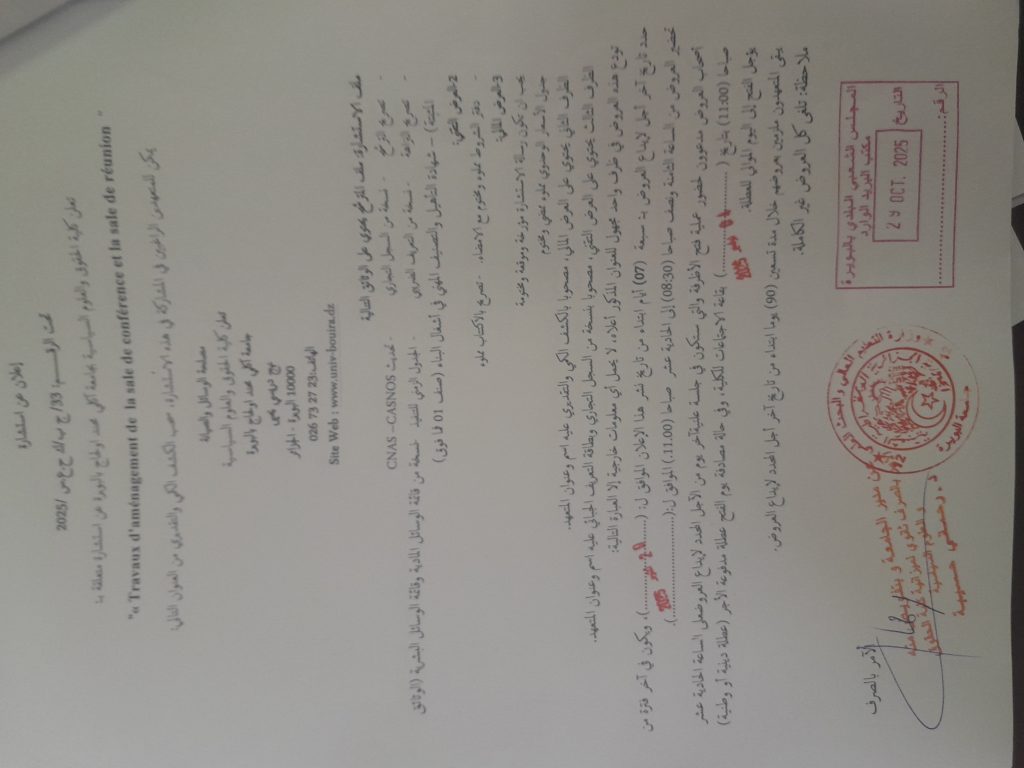 إعلان عن استشارة
تحت الرقم: 33/ج ب/ك ح ع س /2025
تعلن كلية الحقوق والعلوم السياسية بجامعة آكلي محند اولحاج البويرة عن استشارة متعلقة بـ:
"« Travaux d'aménagement de la sale de conférence et la sale de réunion "
يمكن للمتعهدين الراغبين في المشاركة في هذه الاستشارة، سحب الكشف الكمي والتقديري من العنوان التالي:
مصلحة الوسائل والصيانة
تعلن كلية الحقوق والعلوم السياسية
جامعة آكلي محند اولحاج البويرة
نهج دريسي يحي
10000 البويرة - الجزائر
الهاتف: 23 27 73 026
Site Web : www.univ-bouira.dz
ملف الاستشارة: ملف الترشح يحتوي على الوثائق التالية
- تصريح الترشح - نسخة من السجل التجاري - تحديث CNAS –CASNOS
- تصريح النزاهة - نسخة من التعريف الضريبي - الجدول الزمني للتنفيذ - نسخة من قائمة الوسائل المادية وقائمة الوسائل البشرية (الوثائق
المثبتة) - شهادة التأهيل والتصنيف المهني في أشغال البناء (صنف 01 فما فوق)
2-العرض التقني:
- دفتر الشروط مملوء ومختوم مع الامضاء. - تصريح بالاكتتاب مملوء
3-العرض المالي:
يجب ان يكون رسالة الاستشارة مؤرخة وموقعة ومختومة
جدول الأسعار الوحدوي مملوء ممضي ومختوم
الظرف الثاني يحتوي على العرض المالي، مصحوبا بالكشف الكمي والتقديري عليه اسم وعنوان المتعهد.
الظرف الثالث يحتوي على العرض التقني، مصحوبا بنسخة من السجل التجاري وبطاقة التعريف الجبائي عليه اسم وعنوان المتعهد.
تودع هذه العروض في ظرف واحد مجهول للعنوان المذكور أعلاه، لا يحمل أي معلومات خارجية إلا العبارة التالية:
حدد تاريخ آخر أجل لإيداع العروض بـ سبعة (07) أيام ابتداء من تاريخ نشر هذا الإعلان الموافق ل: (......... 2025 .........)، ويكون في آخر فترة من
تحضير العروض من الساعة الثامنة ونصف صباحا (08:30) إلى الحادية عشر صباحا (11:00) الموافق ل:(....................).
أصحاب العروض مدعوون لحضور عملية فتح الأظرفة والتي ستكون في جلسة علنية آخر يوم من الأجل المحدد لإيداع العروض على الساعة الحادية عشر
صباحا (11:00) بتاريخ (......... 2025 .........) بقاعة الاجتماعات للكلية، وفي حالة مصادفة يوم الفتح عطلة مدفوعة الأجر (عطلة دينية أو وطنية)
يؤجل الفتح إلى اليوم الموالي للعطلة.
يبقى المتعهدون ملزمين بعروضهم خلال مدة تسعين (90) يوما ابتداء من تاريخ آخر أجل المحدد لإيداع العروض.
ملاحظة: تلغى كل العروض غير الكاملة.
المجلس الشعبي البلدي بالبويرة
مكتب البريد الوارد
التاريخ
29 OCT. 2025
الرقم:
الآمر بالصرف
وزارة التعليم العالي و البحث العلمي
جامعة البويرة
عن مدير الجامعة و بتفويض منه